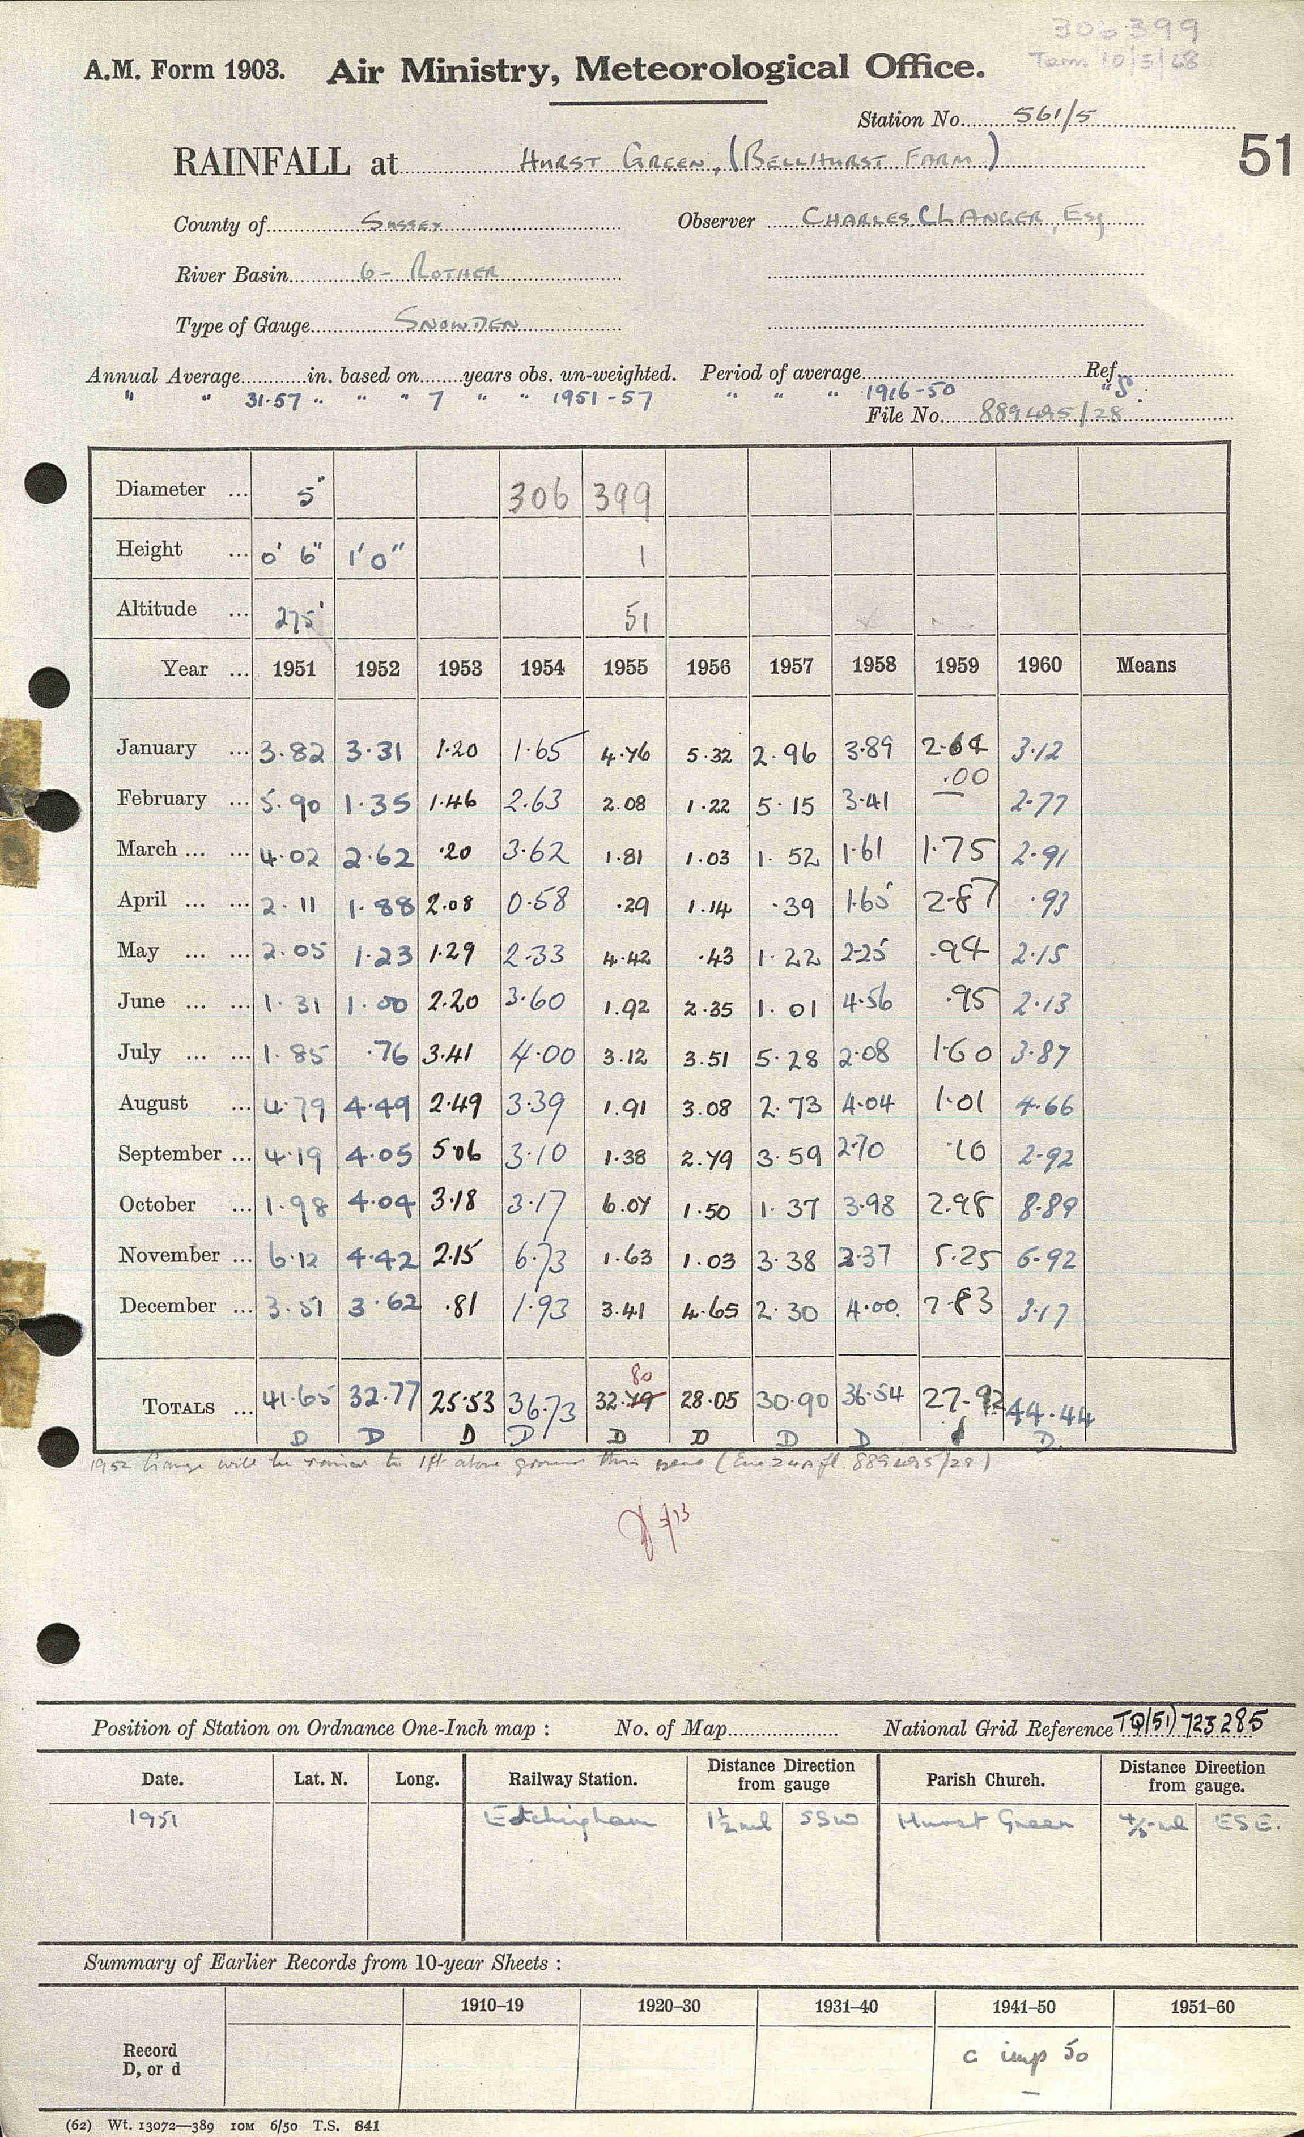 306399
A.M. Form 1903. Air Ministry, Meteorological Office.
Term 10/5/68
Station No. 561/5
RAINFALL at HURST GREEN, (BELLHURST FARM)
51
County of SUSSEX Observer CHARLES CLANGER, ESQ
River Basin 6- ROTHER
Type of Gauge SNOWDEN
Annual Average in. based on years obs. un-weighted. Period of average Ref.
" " 31.57 " " " 7 " " 1951-57 " " " 1916-50 "S.
File No. 889495/28
Diameter ... 5" 306 399
Height ... 0' 6" 1' 0" 1
Altitude ... 275' 51
Year ... 1951 1952 1953 1954 1955 1956 1957 1958 1959 1960 Means
January ... 3.82 3.31 1.20 1.65 4.76 5.32 2.96 3.89 2.64 3.12
February ... 5.90 1.35 1.46 2.63 2.08 1.22 5.15 3.41 .00 2.77
March ... ... 4.02 2.62 .20 3.62 1.81 1.03 1.52 1.61 1.75 2.91
April ... ... 2.11 1.88 2.08 0.58 .29 1.14 .39 1.65 2.87 .93
May ... ... 2.05 1.23 1.29 2.33 4.42 .43 1.22 2.25 .94 2.15
June ... ... 1.31 1.00 2.20 3.60 1.92 2.35 1.01 4.56 .95 2.13
July ... ... 1.85 .76 3.41 4.00 3.12 3.51 5.28 2.08 1.60 3.87
August ... 4.79 4.49 2.49 3.39 1.91 3.08 2.73 4.04 1.01 4.66
September ... 4.19 4.05 5.06 3.10 1.38 2.79 3.59 2.70 .10 2.92
October ... 1.98 4.04 3.18 3.17 6.07 1.50 1.37 3.98 2.98 8.89
November ... 6.12 4.42 2.15 6.73 1.63 1.03 3.38 2.37 5.25 6.92
December ... 3.51 3.62 .81 1.93 3.41 4.65 2.30 4.00 7.83 3.17
80
TOTALS ... 41.65 32.77 25.53 36.73 32.79 28.05 30.90 36.54 27.92 44.44
D D D D D D D D d D
1952 Gauge will be raised to 1ft above ground this year 889495/28)
Position of Station on Ordnance One-Inch map : No. of Map National Grid Reference TQ(51) 723285
Date. Lat. N. Long. Railway Station. Distance Direction from gauge Parish Church. Distance Direction from gauge.
1951 Etchingham 1½ ml SSW Hurst Green 4/5 ml ESE.
Summary of Earlier Records from 10-year Sheets :
1910–19 1920–30 1931–40 1941–50 1951–60
Record
D, or d
c imp 50
(62) Wt. 13072—389 10M 6/50 T.S. 841